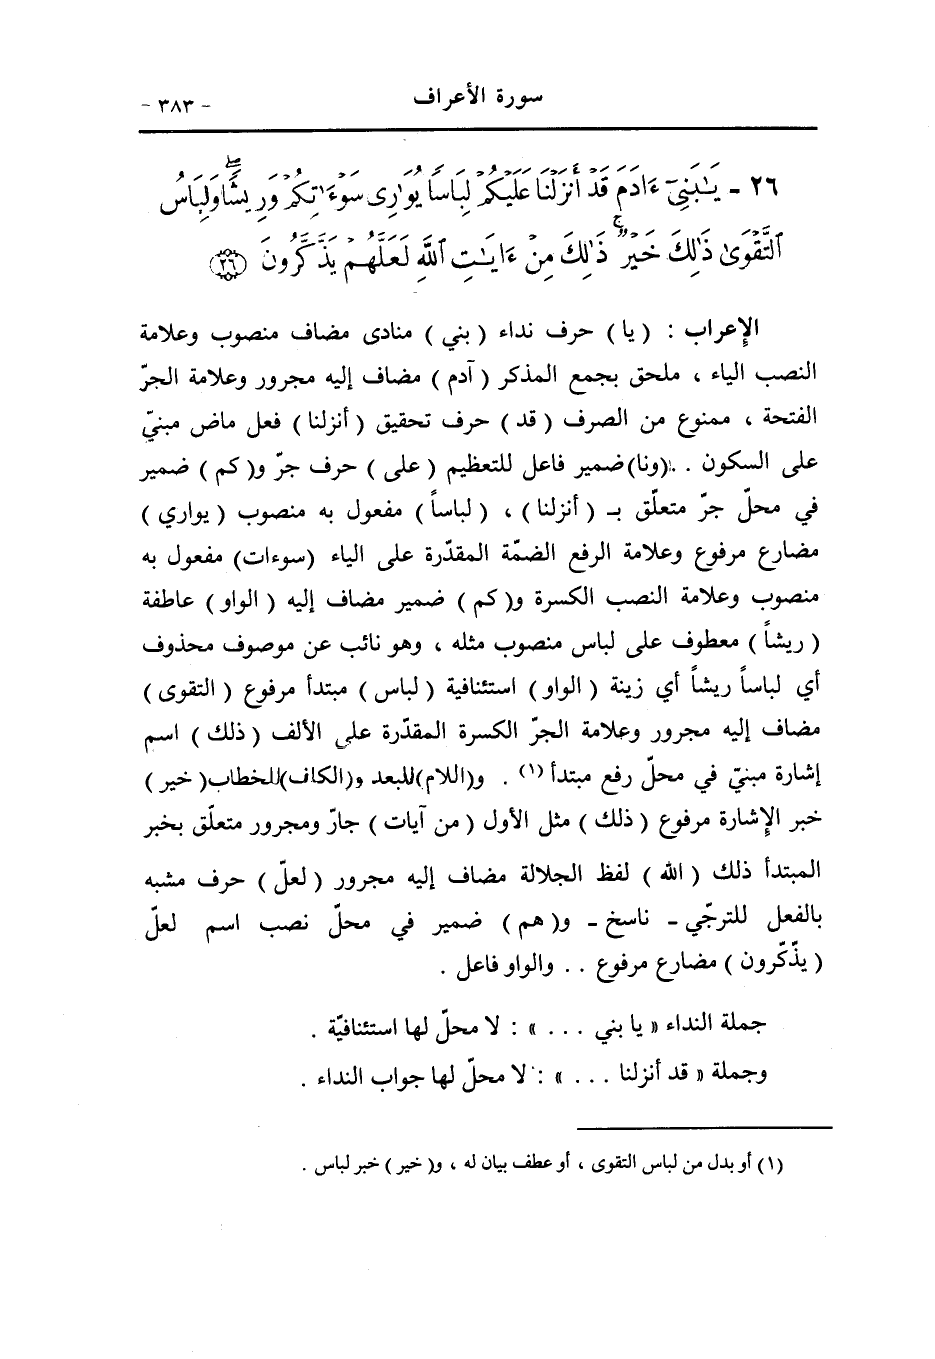 سورة الأعراف - ٣٨٣ -
٢٦ - يَـٰبَنِىٓ ءَادَمَ قَدْ أَنزَلْنَا عَلَيْكُمْ لِبَاسًا يُوَٰرِى سَوْءَٰتِكُمْ وَرِيشًا ۖ وَلِبَاسُ
ٱلتَّقْوَىٰ ذَٰلِكَ خَيْرٌ ۚ ذَٰلِكَ مِنْ ءَايَـٰتِ ٱللَّهِ لَعَلَّهُمْ يَذَّكَّرُونَ ﴿٢٦﴾
الإعراب : ( يا ) حرف نداء ( بني ) منادى مضاف منصوب وعلامة
النصب الياء ، ملحق بجمع المذكر ( آدم ) مضاف إليه مجرور وعلامة الجرّ
الفتحة ، ممنوع من الصرف ( قد ) حرف تحقيق ( أنزلنا ) فعل ماض مبنيّ
على السكون . . (ونا) ضمير فاعل للتعظيم ( على ) حرف جرّ و( كم ) ضمير
في محلّ جرّ متعلّق بـ ( أنزلنا ) ، ( لباساً ) مفعول به منصوب ( يواري )
مضارع مرفوع وعلامة الرفع الضمّة المقدّرة على الياء (سوءات) مفعول به
منصوب وعلامة النصب الكسرة و( كم ) ضمير مضاف إليه ( الواو ) عاطفة
( ريشاً ) معطوف على لباس منصوب مثله ، وهو نائب عن موصوف محذوف
أي لباساً ريشاً أي زينة ( الواو ) استئنافية ( لباس ) مبتدأ مرفوع ( التقوى )
مضاف إليه مجرور وعلامة الجرّ الكسرة المقدّرة على الألف ( ذلك ) اسم
إشارة مبنيّ في محلّ رفع مبتدأ (١) . و(اللام) للبعد و(الكاف) للخطاب ( خير )
خبر الإشارة مرفوع ( ذلك ) مثل الأول ( من آيات ) جارّ ومجرور متعلّق بخبر
المبتدأ ذلك ( الله ) لفظ الجلالة مضاف إليه مجرور ( لعلّ ) حرف مشبه
بالفعل للترجّي - ناسخ - و( هم ) ضمير في محلّ نصب اسم لعلّ
( يذّكّرون ) مضارع مرفوع . . والواو فاعل .
جملة النداء « يا بني . . . » : لا محلّ لها استئنافيّة .
وجملة « قد أنزلنا . . . » : لا محلّ لها جواب النداء .
(١) أو بدل من لباس التقوى ، أو عطف بيان له ، و( خير ) خبر لباس .